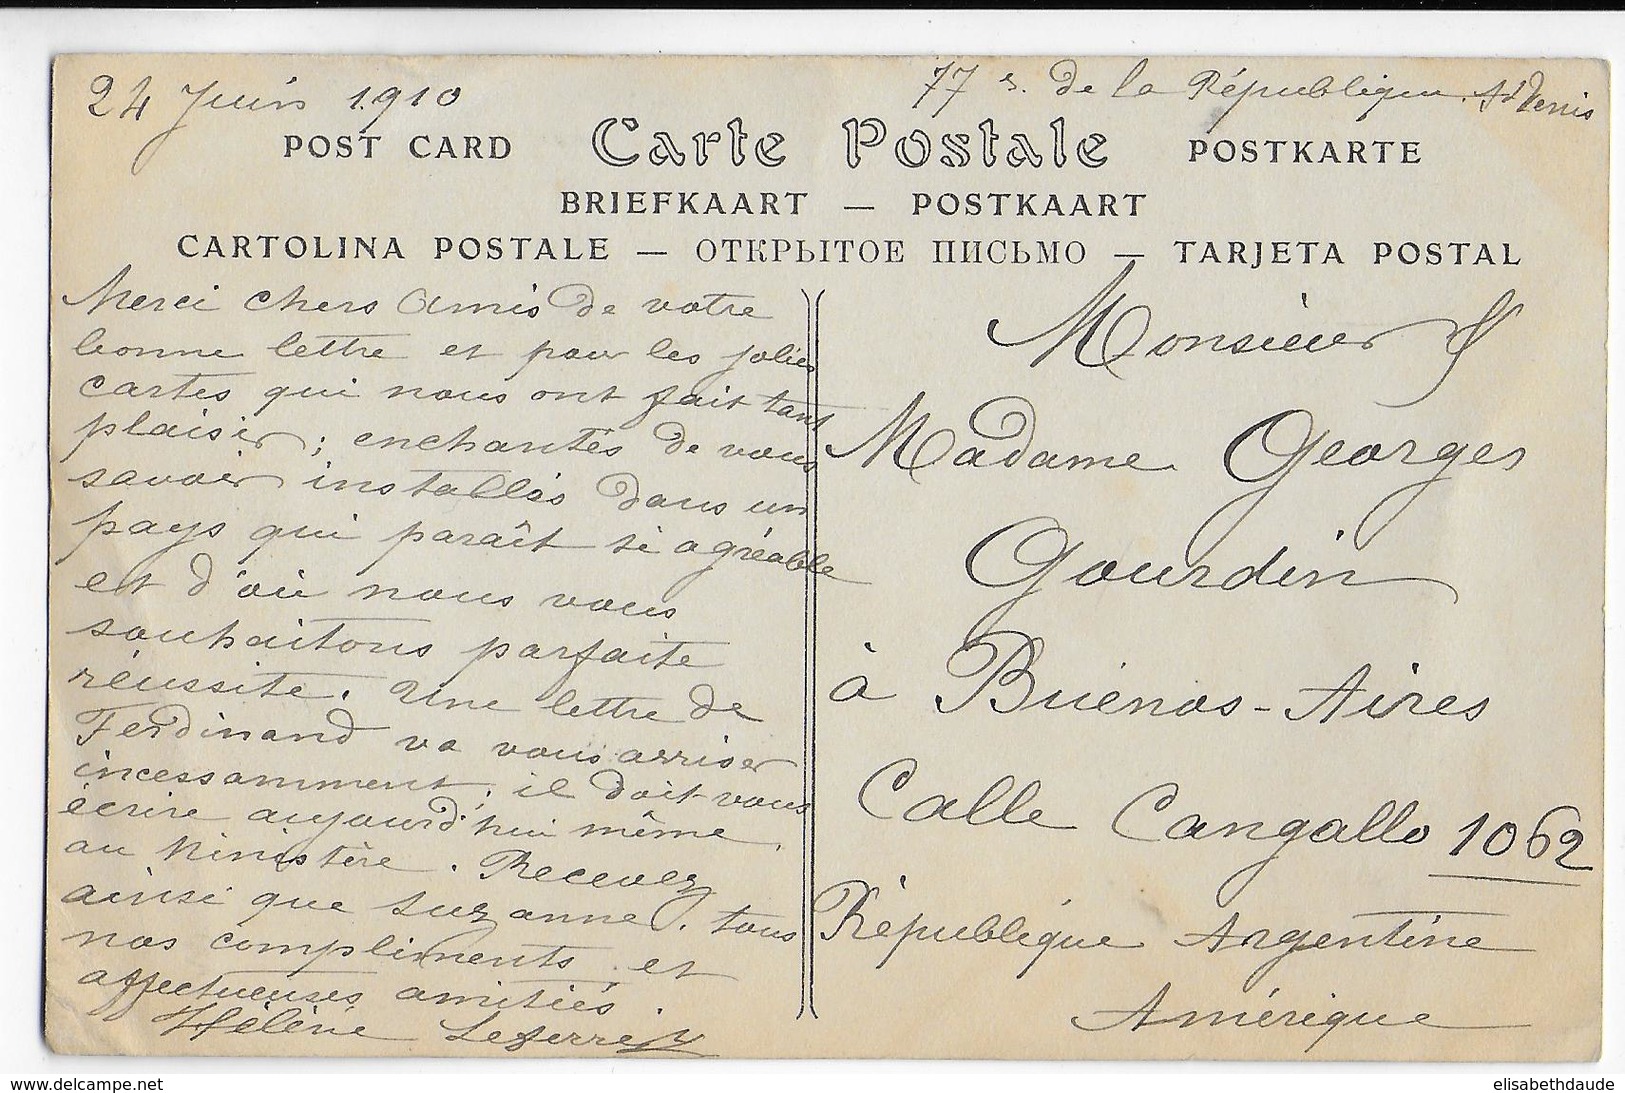 24 Juin 1910
77 r. de la République St Denis
POST CARD Carte Postale POSTKARTE
BRIEFKAART — POSTKAART
CARTOLINA POSTALE — ОТКРЫТОЕ ПИСЬМО — TARJETA POSTAL
Merci chers Amis de votre
bonne lettre et pour les jolies
cartes qui nous ont fait tant
plaisir ; enchantés de vous
savoir installés dans un
pays qui paraît si agréable
et d'où nous vous
souhaitons parfaite
réussite. Une lettre de
Ferdinand va vous arriver
incessamment ; il doit vous
écrire aujourd'hui même
au Ministère. Recevez
ainsi que Suzanne, tous
nos compliments et
affectueuses amitiés.
Hélène
Monsieur &
Madame Georges
Gourdin
à Buénos-Aires
Calle Cangallo 1062
République Argentine
Amérique
www.delcampe.net
elisabethdaude